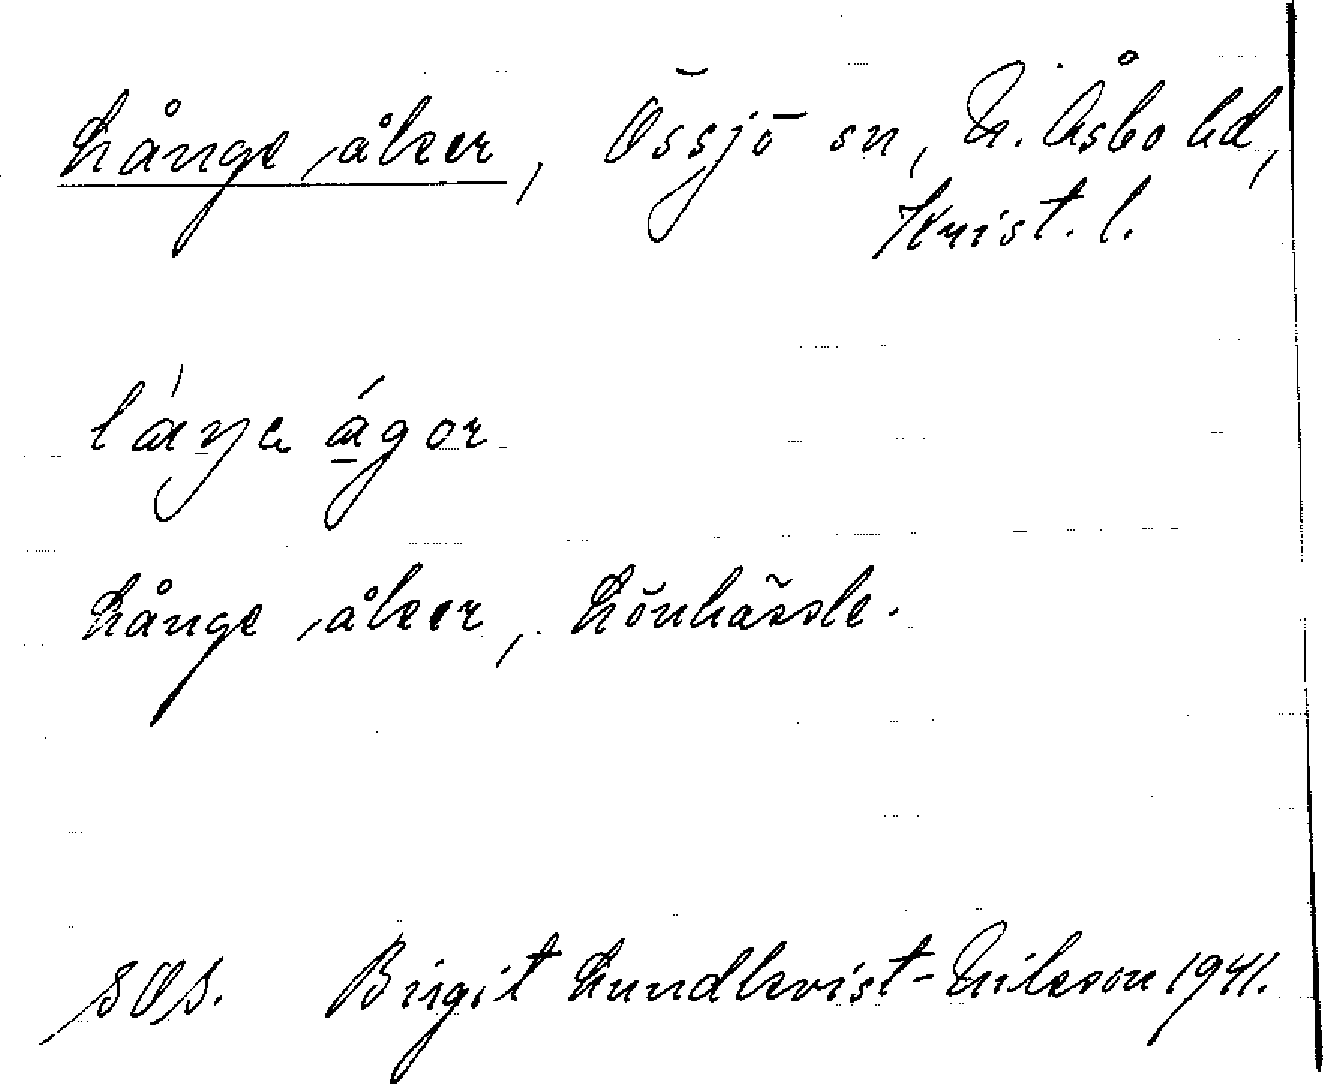 Långe ,åker, Össjö sn, N. Åsbo hd,
Krist. l.
lánge ágor
Långe ,åker, Lönhässle.
SOS. Birgit Lundkvist-Nilsson 1941.